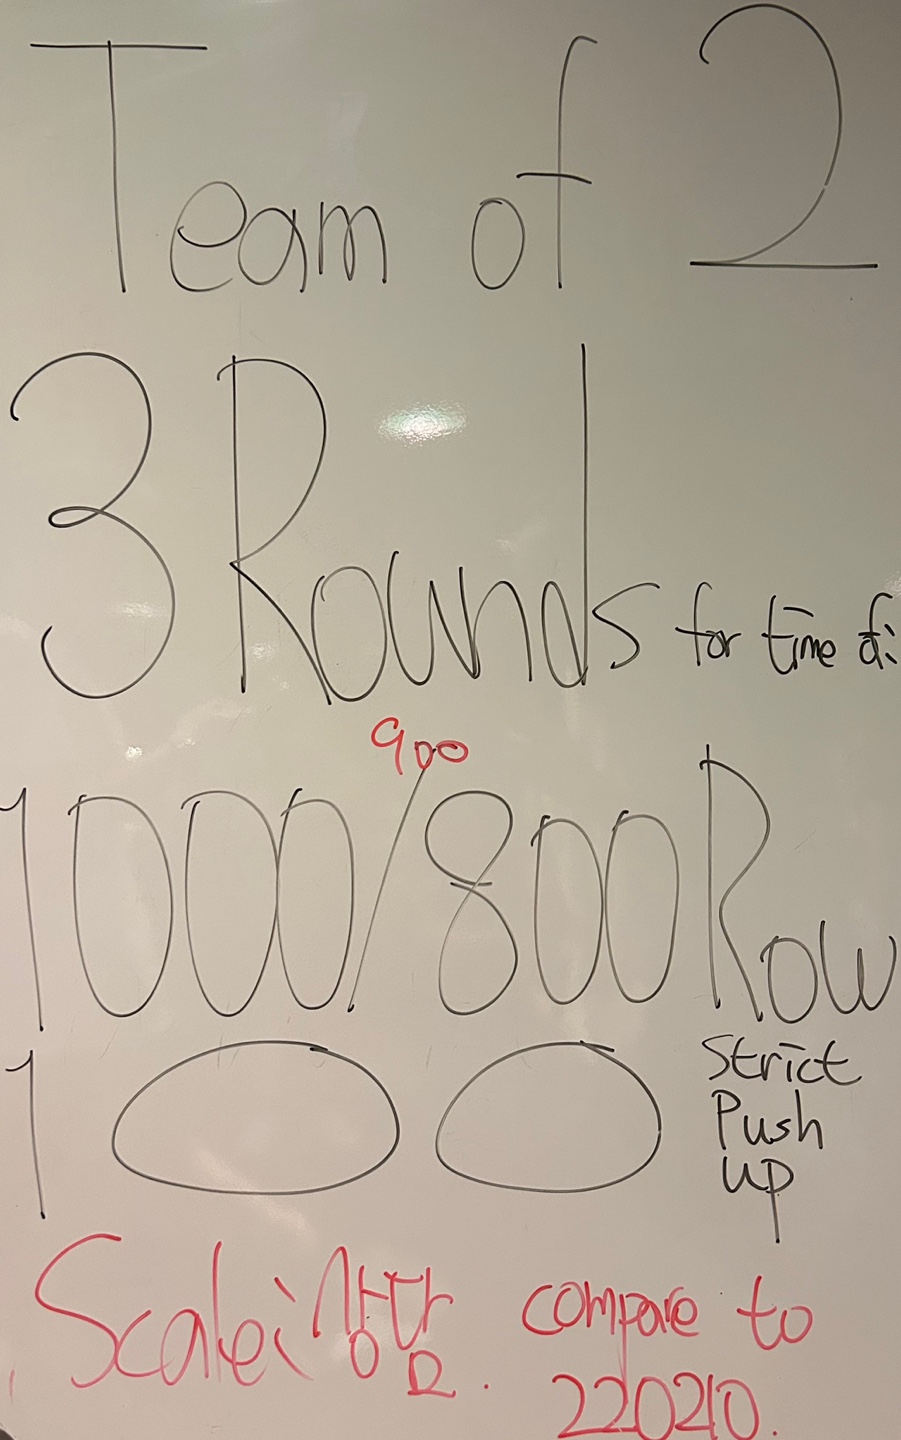 Team of 2
3 Rounds for time of:
900
1000/800 Row
100 Strict
Push
up
Scale: 상담. compare to
220210.